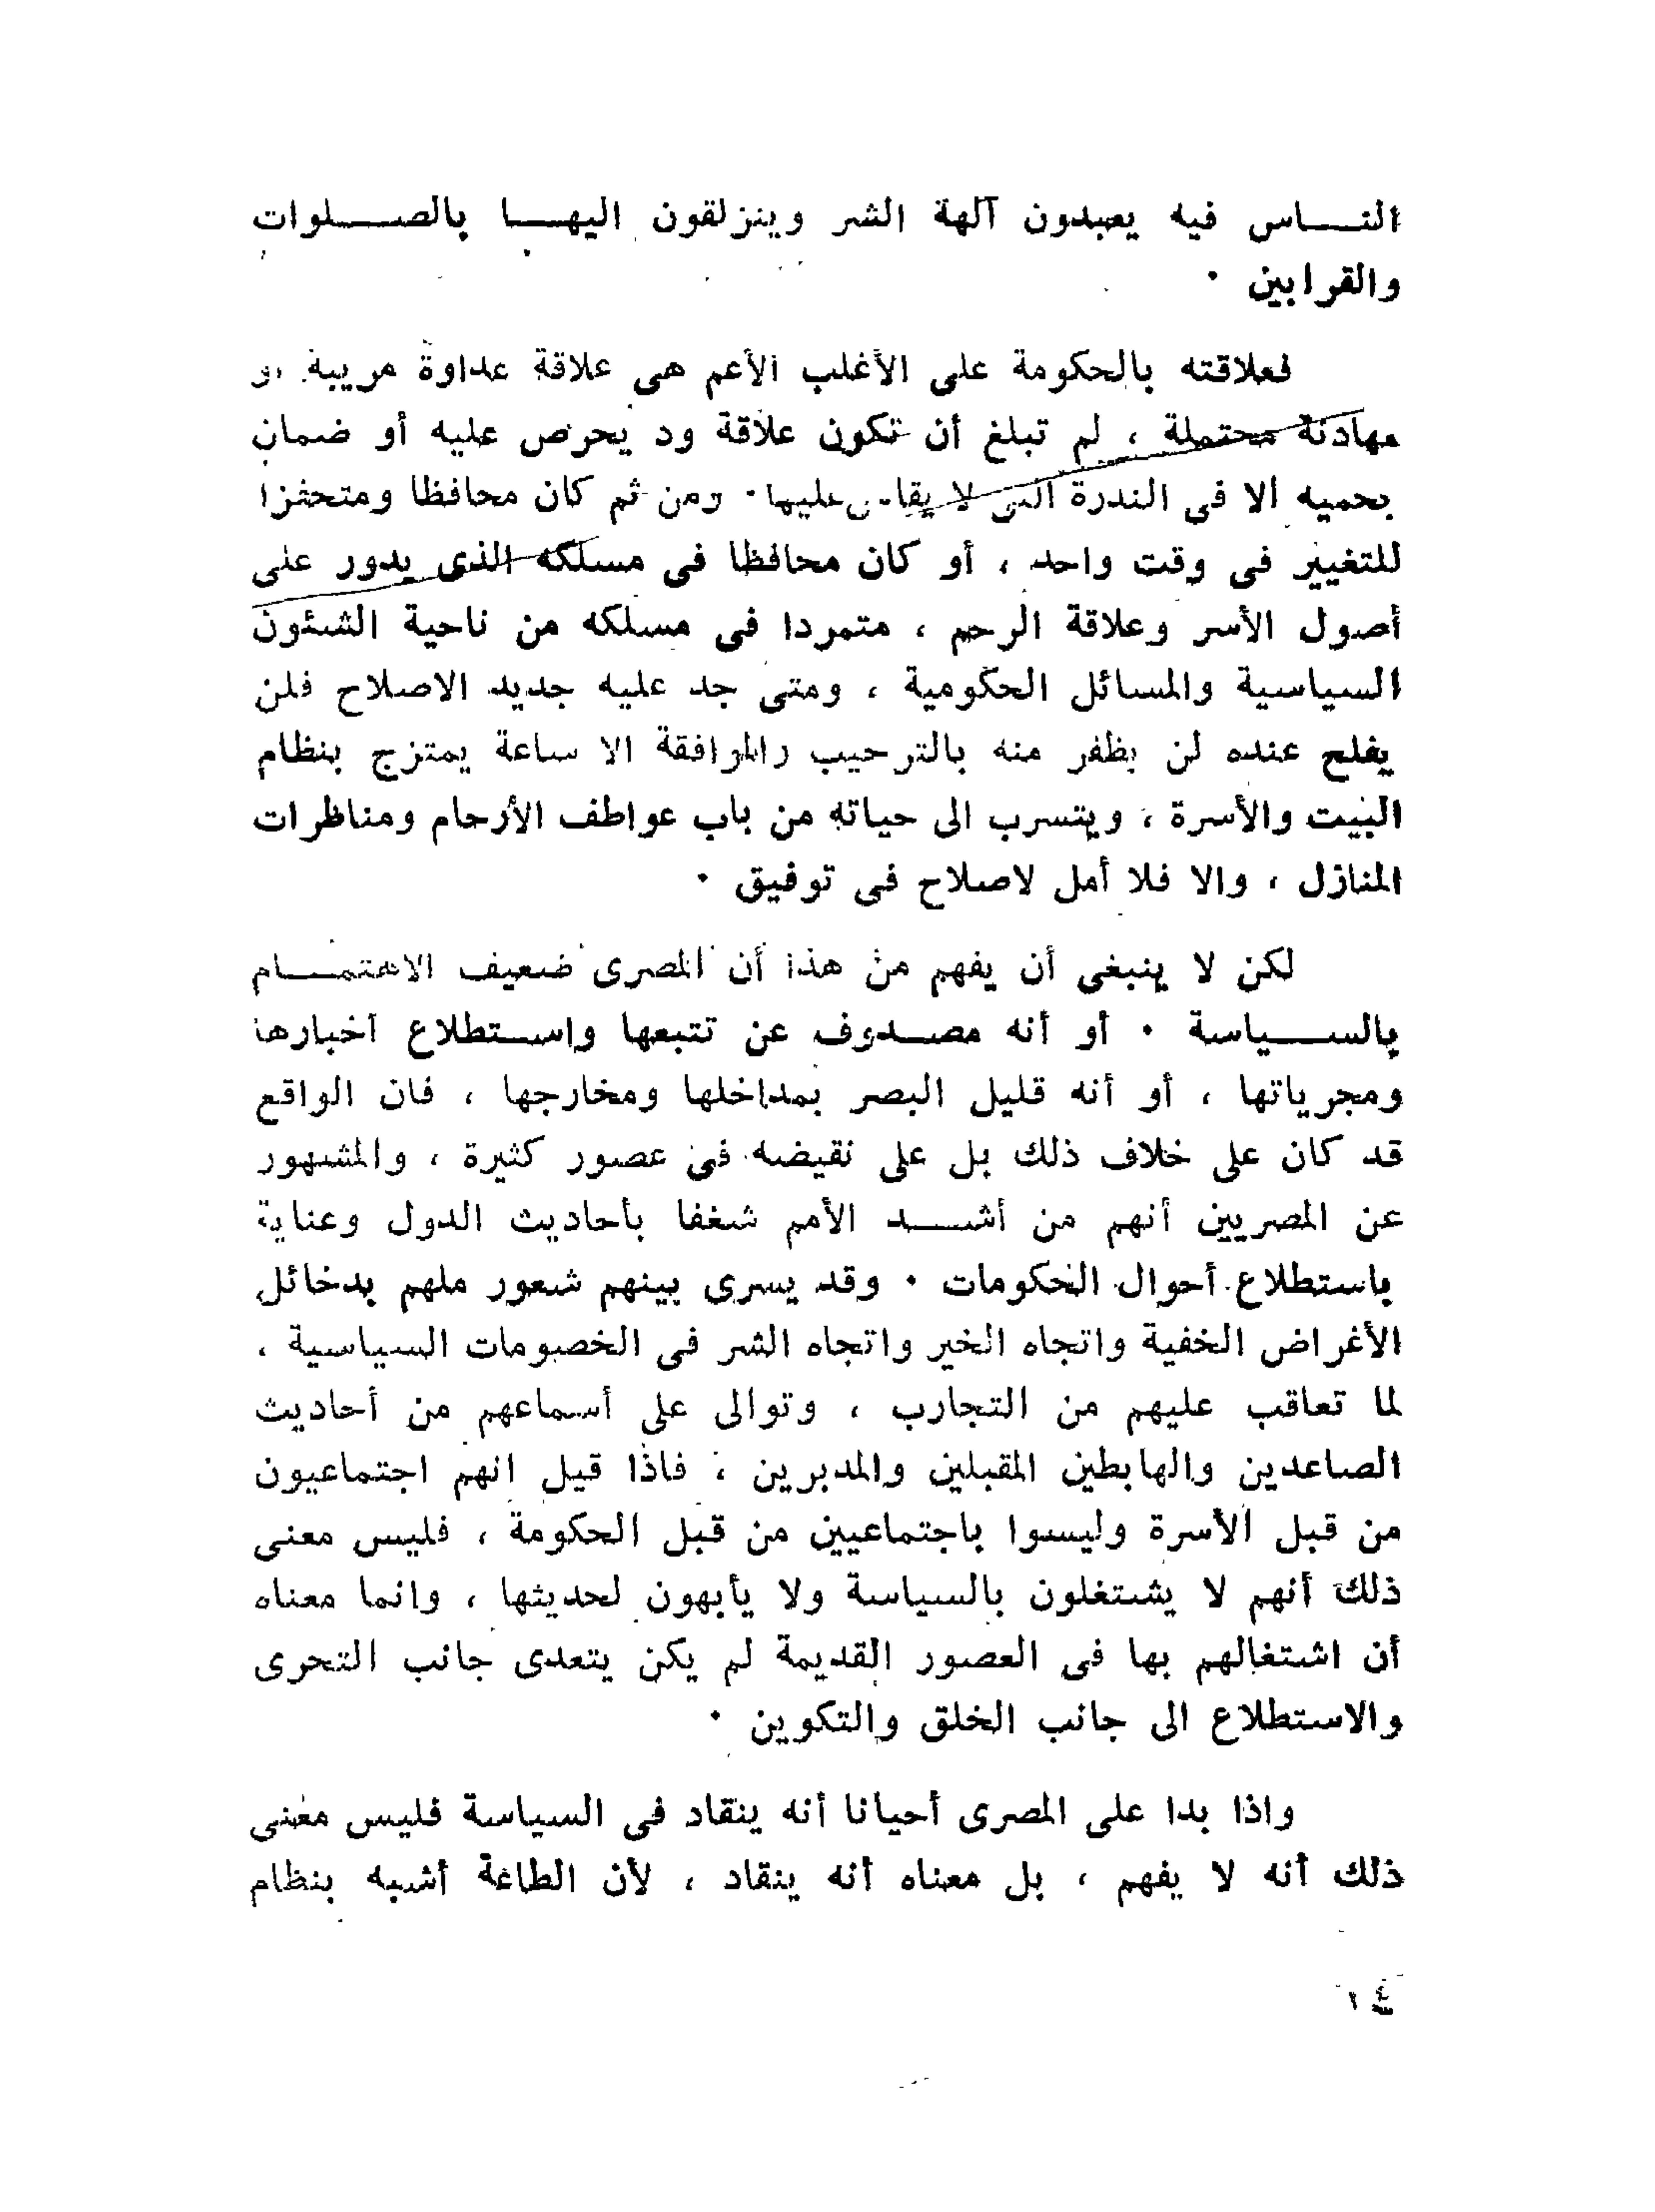 النـــاس فيه يعبدون آلهة الشر وينزلقون اليهـــا بالصـــلوات
والقرابين ٠
فعلاقته بالحكومة على الأغلب الأعم هى علاقة عداوة مريبة أو
مهادنة محتملة ، لم تبلغ أن تكون علاقة ود يحرص عليه أو ضمان
يحميه الا فى الندرة التى لا يقاس عليها ٠ ومن ثم كان محافظا ومتحفزا
للتغيير فى وقت واحد ، أو كان محافظا فى مسلكه الذى يدور على
أصول الأسر وعلاقة الرحم ، متمردا فى مسلكه من ناحية الشئون
السياسية والمسائل الحكومية ، ومتى جد عليه جديد الاصلاح فلن
يفلح عنده لن يظفر منه بالترحيب والموافقة الا ساعة يمتزج بنظام
البيت والأسرة ، ويتسرب الى حياته من باب عواطف الأرحام ومناظرات
المنازل ، والا فلا أمل لاصلاح فى توفيق ٠
لكن لا ينبغى أن يفهم من هذا أن المصرى ضعيف الاهتمـــام
بالســـياسة ٠ أو أنه مصـــدوف عن تتبعها واســـتطلاع أخبارها
ومجرياتها ، أو أنه قليل البصر بمداخلها ومخارجها ، فان الواقع
قد كان على خلاف ذلك بل على نقيضه فى عصور كثيرة ، والمشهور
عن المصريين أنهم من أشـــد الأمم شغفا بأحاديث الدول وعناية
باستطلاع أحوال الحكومات ٠ وقد يسرى بينهم شعور ملهم بدخائل
الأغراض الخفية واتجاه الخير واتجاه الشر فى الخصومات السياسية ،
لما تعاقب عليهم من التجارب ، وتوالى على أسماعهم من أحاديث
الصاعدين والهابطين المقبلين والمدبرين ، فاذا قيل انهم اجتماعيون
من قبل الأسرة وليسوا باجتماعيين من قبل الحكومة ، فليس معنى
ذلك أنهم لا يشتغلون بالسياسة ولا يأبهون لحديثها ، وانما معناه
أن اشتغالهم بها فى العصور القديمة لم يكن يتعدى جانب التحرى
والاستطلاع الى جانب الخلق والتكوين ٠
واذا بدا على المصرى أحيانا أنه ينقاد فى السياسة فليس معنى
ذلك أنه لا يفهم ، بل معناه أنه ينقاد ، لأن الطاعة أشبه بنظام
١٤